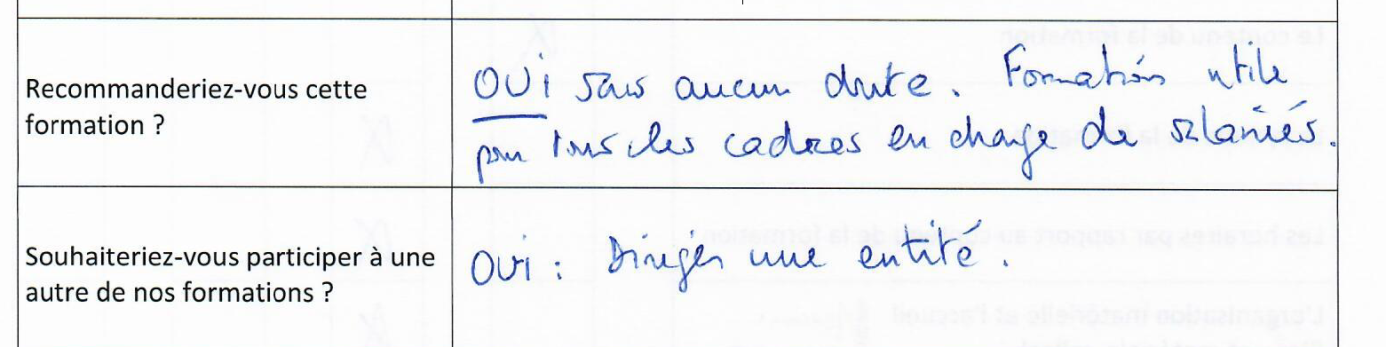 Recommanderiez-vous cette
formation ?
OUi sans aucun doute. Formation utile
pour tous les cadres en charge de salariés.
Souhaiteriez-vous participer à une
autre de nos formations ?
OUi : Diriger une entité.